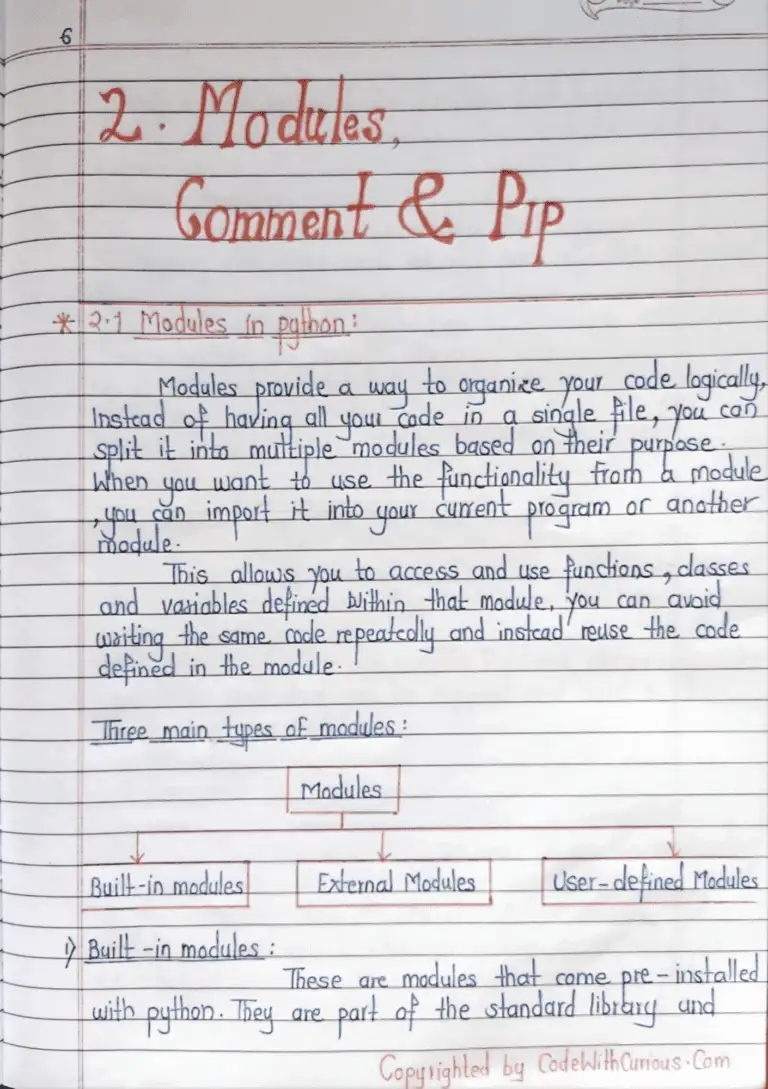 6
2. Modules,
Comment & Pip
* 2.1 Modules in python:
Modules provide a way to organize your code logically,
Instead of having all your code in a single file, you can
split it into multiple modules based on their purpose.
When you want to use the functionality from a module
, you can import it into your current program or another
module.
This allows you to access and use functions, classes
and variables defined within that module, you can avoid
writing the same code repeatedly and instead reuse the code
defined in the module.
Three main types of modules:
Modules
Built-in modules External Modules User-defined Modules
1) Built-in modules:
These are modules that come pre-installed
with python. They are part of the standard library and
Copyrighted by CodeWithCurious.Com